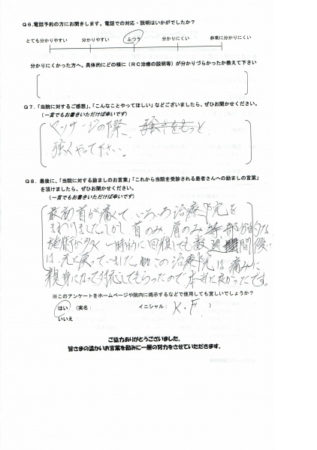 Q6.電話予約の方にお聞きします。電話での対応・説明はいかがでしたか？
とても分かりやすい 分かりやすい ふつう 分かりにくい 非常に分かりにくい
分かりにくかった方へ、具体的にどの様に（RC治療の説明等）が分かりづらかったか教えて下さい
Q7.「当院に対するご感想」、「こんなことやってほしい」などございましたら、ぜひお聞かせください。
（一言でもお書きいただければ幸いです）
マッサージの際、もっと
強くやって下さい。
Q8.最後に、「当院に対する励ましのお言葉」「これから当院を受診される患者さんへの励ましの言葉」
を頂けましたら、ぜひお聞かせください。
（一言でもお書きいただければ幸いです）
最初首が痛くて いろいろ治療院を
まわりましたが 首のみ、肩のみ 部分的な
施術が多く 一時的に回復しても 数週間後に
は元に戻っていました。この治療院は痛みに
親身になって対応してもらったので本当に良かったです。
※このアンケートをホームページや院内に掲示するなどで使用しても宜しいでしょうか？
はい （実名： イニシャル： K.F ）
いいえ
ご協力ありがとうございました。
皆さまの温かいお言葉を励みに一層の努力をさせていただきます。